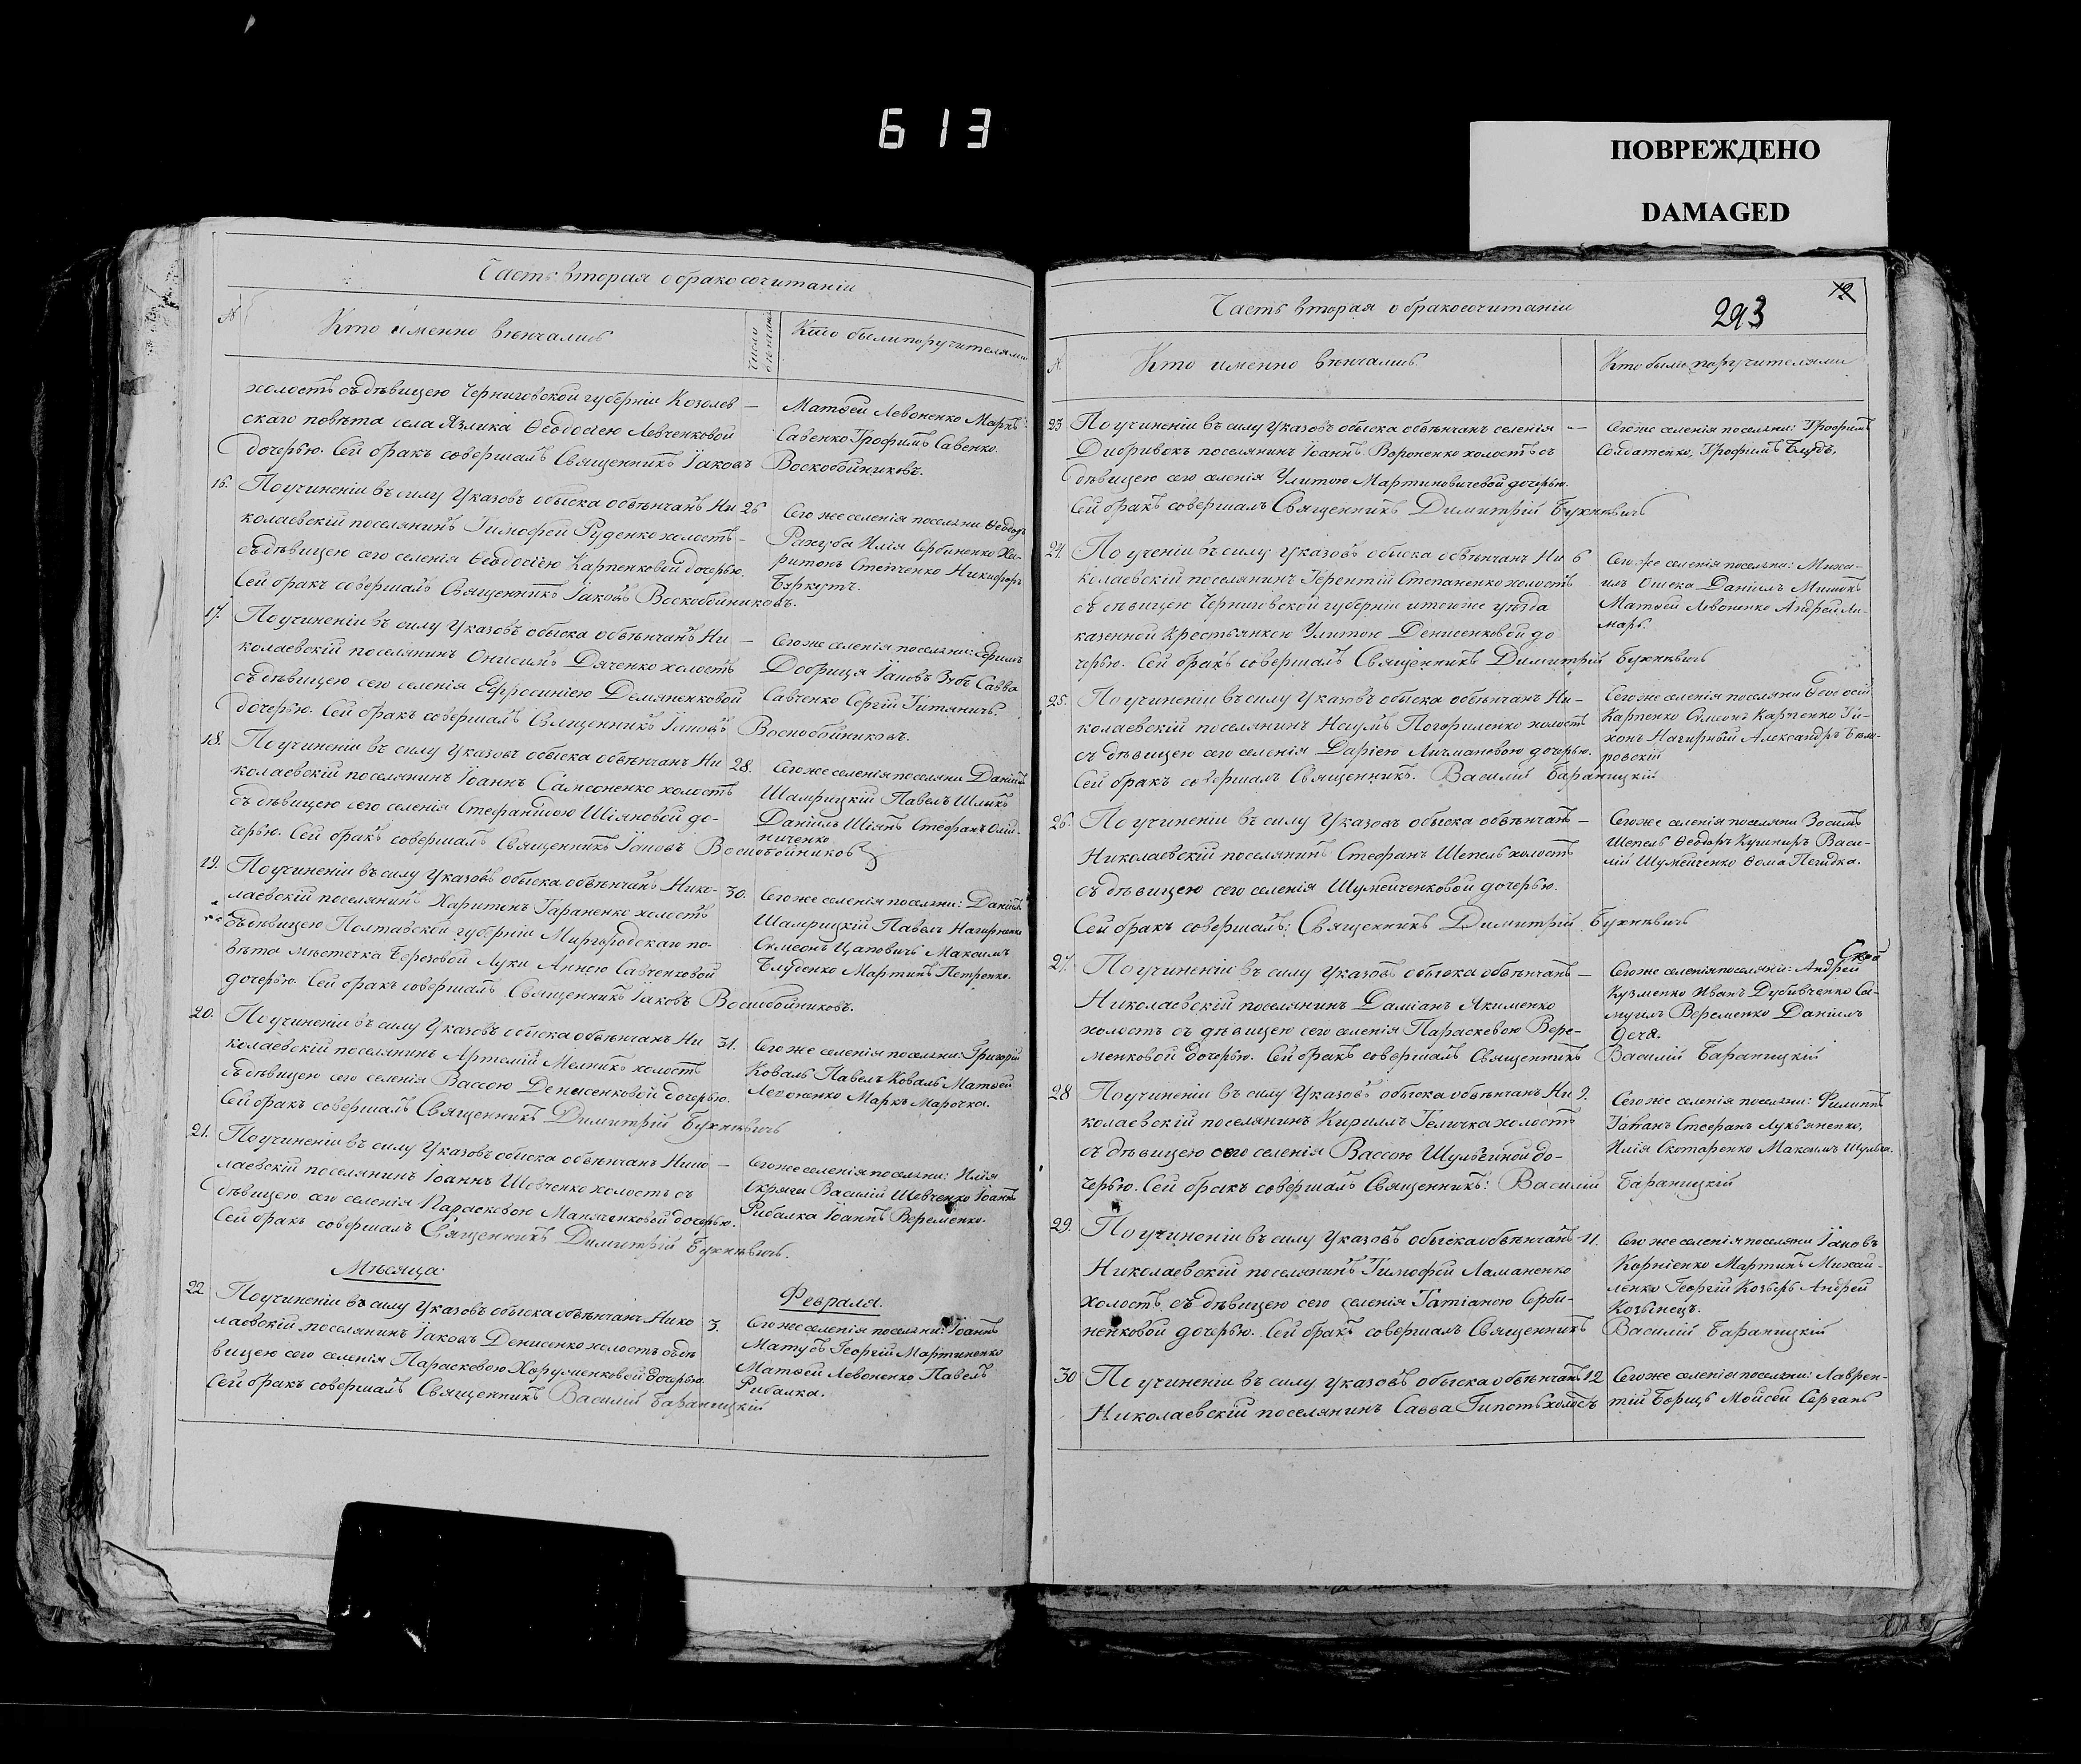 613
ПОВРЕЖДЕНО
DAMAGED
Часть вторая о бракосочитаніи
№
Кто именно вѣнчались
Число
Кто были поручителями
холостъ съ дѣвицею Черниговской губерніи Козолев —
скаго повѣта села Язлика Ѳеодосіею Левченковой
дочерью. Сей бракъ совершалъ Священникъ Іаковъ Воскобойниковъ.
Матѳей Левоненко Маркъ
Савенко Трофимъ Савенко.
16. По учиненіи въ силу Указовъ обыска обвѣнчанъ Ни 26
колаевскій поселянинъ Тимофей Руденко холостъ
съ дѣвицею сего селенія Ѳеодосіею Карпенковой дочерью.
Сей бракъ совершалъ Священникъ Іаковъ Воскобойниковъ.
Сего же селенія поселяни Ѳеодоръ
Рахуба Илія Сербиненко Ха-
ритонъ Степченко Никифоръ
Буркутъ.
17. По учиненіи въ силу Указовъ обыска обвѣнчанъ Ни —
колаевскій поселянинъ Онисимъ Дяченко холостъ
съ дѣвицею сего селенія Ефросиніею Демяненковой
дочерью. Сей бракъ совершалъ Священникъ Іаковъ Воскобойниковъ.
Сего же селенія поселяни: Ефимъ
Добриця Іаковъ Зубъ Савва
Савченко Сергій Титяничъ.
18. По учиненіи въ силу Указовъ обыска обвѣнчанъ Ни 28.
колаевскій поселянинъ Іоаннъ Самсоненко холостъ
съ дѣвицею сего селенія Стефанидою Шіяновой до-
черью. Сей бракъ совершалъ Священникъ Іаковъ Воскобойниковъ
Сего же селенія поселяни Даніилъ
Шамрицкій Павелъ Шлыкъ
Даніилъ Шіянъ Стефанъ Олій-
ниченко
19. По учиненіи въ силу Указовъ обыска обвѣнчанъ Нико- 30.
лаевскій поселянинъ Харитонъ Гараненко холостъ
съ дѣвицею Полтавской губерніи Миргородскаго по-
вѣта мѣстечка Березовой Луки Анною Савченковой
дочерью. Сей бракъ совершалъ Священникъ Іаковъ Воскобойниковъ.
Сего же селенія поселяни: Даніилъ
Шамрицкій Павелъ Нагирненко
Симеонъ Цаповичъ Максимъ
Блуденко Мартинъ Петренко.
20. По учиненіи въ силу Указовъ обыска обвѣнчанъ Ни 31.
колаевскій поселянинъ Артемій Мелникъ холостъ
съ дѣвицею сего селенія Вассою Денисенковой дочерью.
Сей бракъ совершалъ Священникъ Димитрій Букневичъ
Сего же селенія поселяни: Григорій
Коваль Павелъ Коваль Матѳей
Левоненко Маркъ Марочка.
21. По учиненіи въ силу Указовъ обыска обвѣнчанъ Нико —
лаевскій поселянинъ Іоаннъ Шевченко холостъ съ
дѣвицею сего селенія Параскевою Маняченковой дочерью.
Сей бракъ совершалъ Священникъ Димитрій Букневичъ.
Сего же селенія поселяни: Илія
Скряга Василій Шевченко Іоаннъ
Рибалка Іоаннъ Веременко.
Мѣсяца Февраля.
22. По учиненіи въ силу Указовъ обыска обвѣнчанъ Нико 3.
лаевскій поселянинъ Іаковъ Денисенко холостъ съ дѣ
вицею сего селенія Параскевою Хоруженковой дочерью.
Сей бракъ совершалъ Священникъ Василій Бараницкій
Сего же селенія поселяни: Іоаннъ
Матусъ Георгій Мартиненко
Матѳей Левоненко Павелъ
Рибалка.
Часть вторая о бракосочитаніи
293
12
№
Кто именно вѣнчались.
Кто были поручителями
23 По учиненіи въ силу Указовъ обыска обвѣнчанъ селенія —
Диоривокъ поселянинъ Іоаннъ Вороненко холостъ съ
дѣвицею сего селенія Улитою Мартиновичевой дочерью.
Сей бракъ совершалъ Священникъ Димитрій Букневичъ
Сего же селенія поселяни: Трофимъ
Солдатенко, Трофимъ Блудъ,
24. По учсніи въ силу Указовъ обыска обвѣнчанъ Ни 6
колаевскій поселянинъ Терентій Степаненко холостъ
съ дѣвицею Черниговской губерніи итогоже уѣзда
казенной крестьянкою Улитою Денисенковой до
черью. Сей бракъ совершалъ Священникъ Димитрій Букневичъ
Сего же селенія поселяни: Миха-
илъ Ошека Даніилъ Мишокъ
Матѳей Левоненко Андрей Ли-
марь.
25. По учиненіи въ силу Указовъ обыска обвѣнчанъ Ни-
колаевскій поселянинъ Наумъ Погориленко холостъ
съ дѣвицею сего селенія Даріею Личмановою дочерью.
Сей бракъ совершалъ Священникъ. Василій Бараницкій
Сего же селенія поселяни Ѳеодосій
Карпенко Симеонъ Карпенко Ти-
хонъ Нагирный Александръ Бѣли-
ровскій
26. По учиненіи въ силу Указовъ обыска обвѣнчанъ —
Николаевскій поселянинъ Стефанъ Шепель холостъ
съ дѣвицею сего селенія Шумейченковой дочерью.
Сей бракъ совершалъ: Священникъ Димитрій Букневичъ
Сего же селенія поселяни Зосимъ
Шепель Ѳеодоръ Кушниръ Васи-
лій Шумейченко Ѳома Пегидка.
27. По учиненіи въ силу Указовъ обыска обвѣнчанъ —
Николаевскій поселянинъ Даміанъ Якименко
холостъ съ дѣвицею сего селенія Параскевою Вере-
менковой дочерью. Сей бракъ совершалъ Священникъ Василій Бараницкій
Сего же селенія поселяни: Андрей
Кузменко Иванъ Дубивченко Са-
муилъ Веременко Даніилъ
28 По учиненіи въ силу Указовъ обыска обвѣнчанъ Ни 9.
колаевскій поселянинъ Кириллъ Теличка холостъ
съ дѣвицею сего селенія Вассою Шульгиной до-
черью. Сей бракъ совершалъ Священникъ: Василій Бараницкій
Сего же селенія поселяни: Филиппъ
Таранъ Стефанъ Лукьяненко,
Илія Скотаренко Максимъ Шульга.
29. По учиненіи въ силу Указовъ обыска обвѣнчанъ 11.
Николаевскій поселянинъ Тимофей Ламаненко
холостъ, съ дѣвицею сего селенія Татіаною Серби-
ненковой дочерью. Сей бракъ совершалъ Священникъ Василій Бараницкій
Сего же селенія поселяни Іаковъ
Корніенко Мартинъ Михай-
ленко Георгій Козырь Андрей
Козынецъ.
30 По учиненіи въ силу указовъ обыска обвѣнчанъ 12
Николаевскій поселянинъ Савва Гипоть холостъ
Сего же селенія поселяни: Лаврен-
тій Борицъ Мойсей Сергань